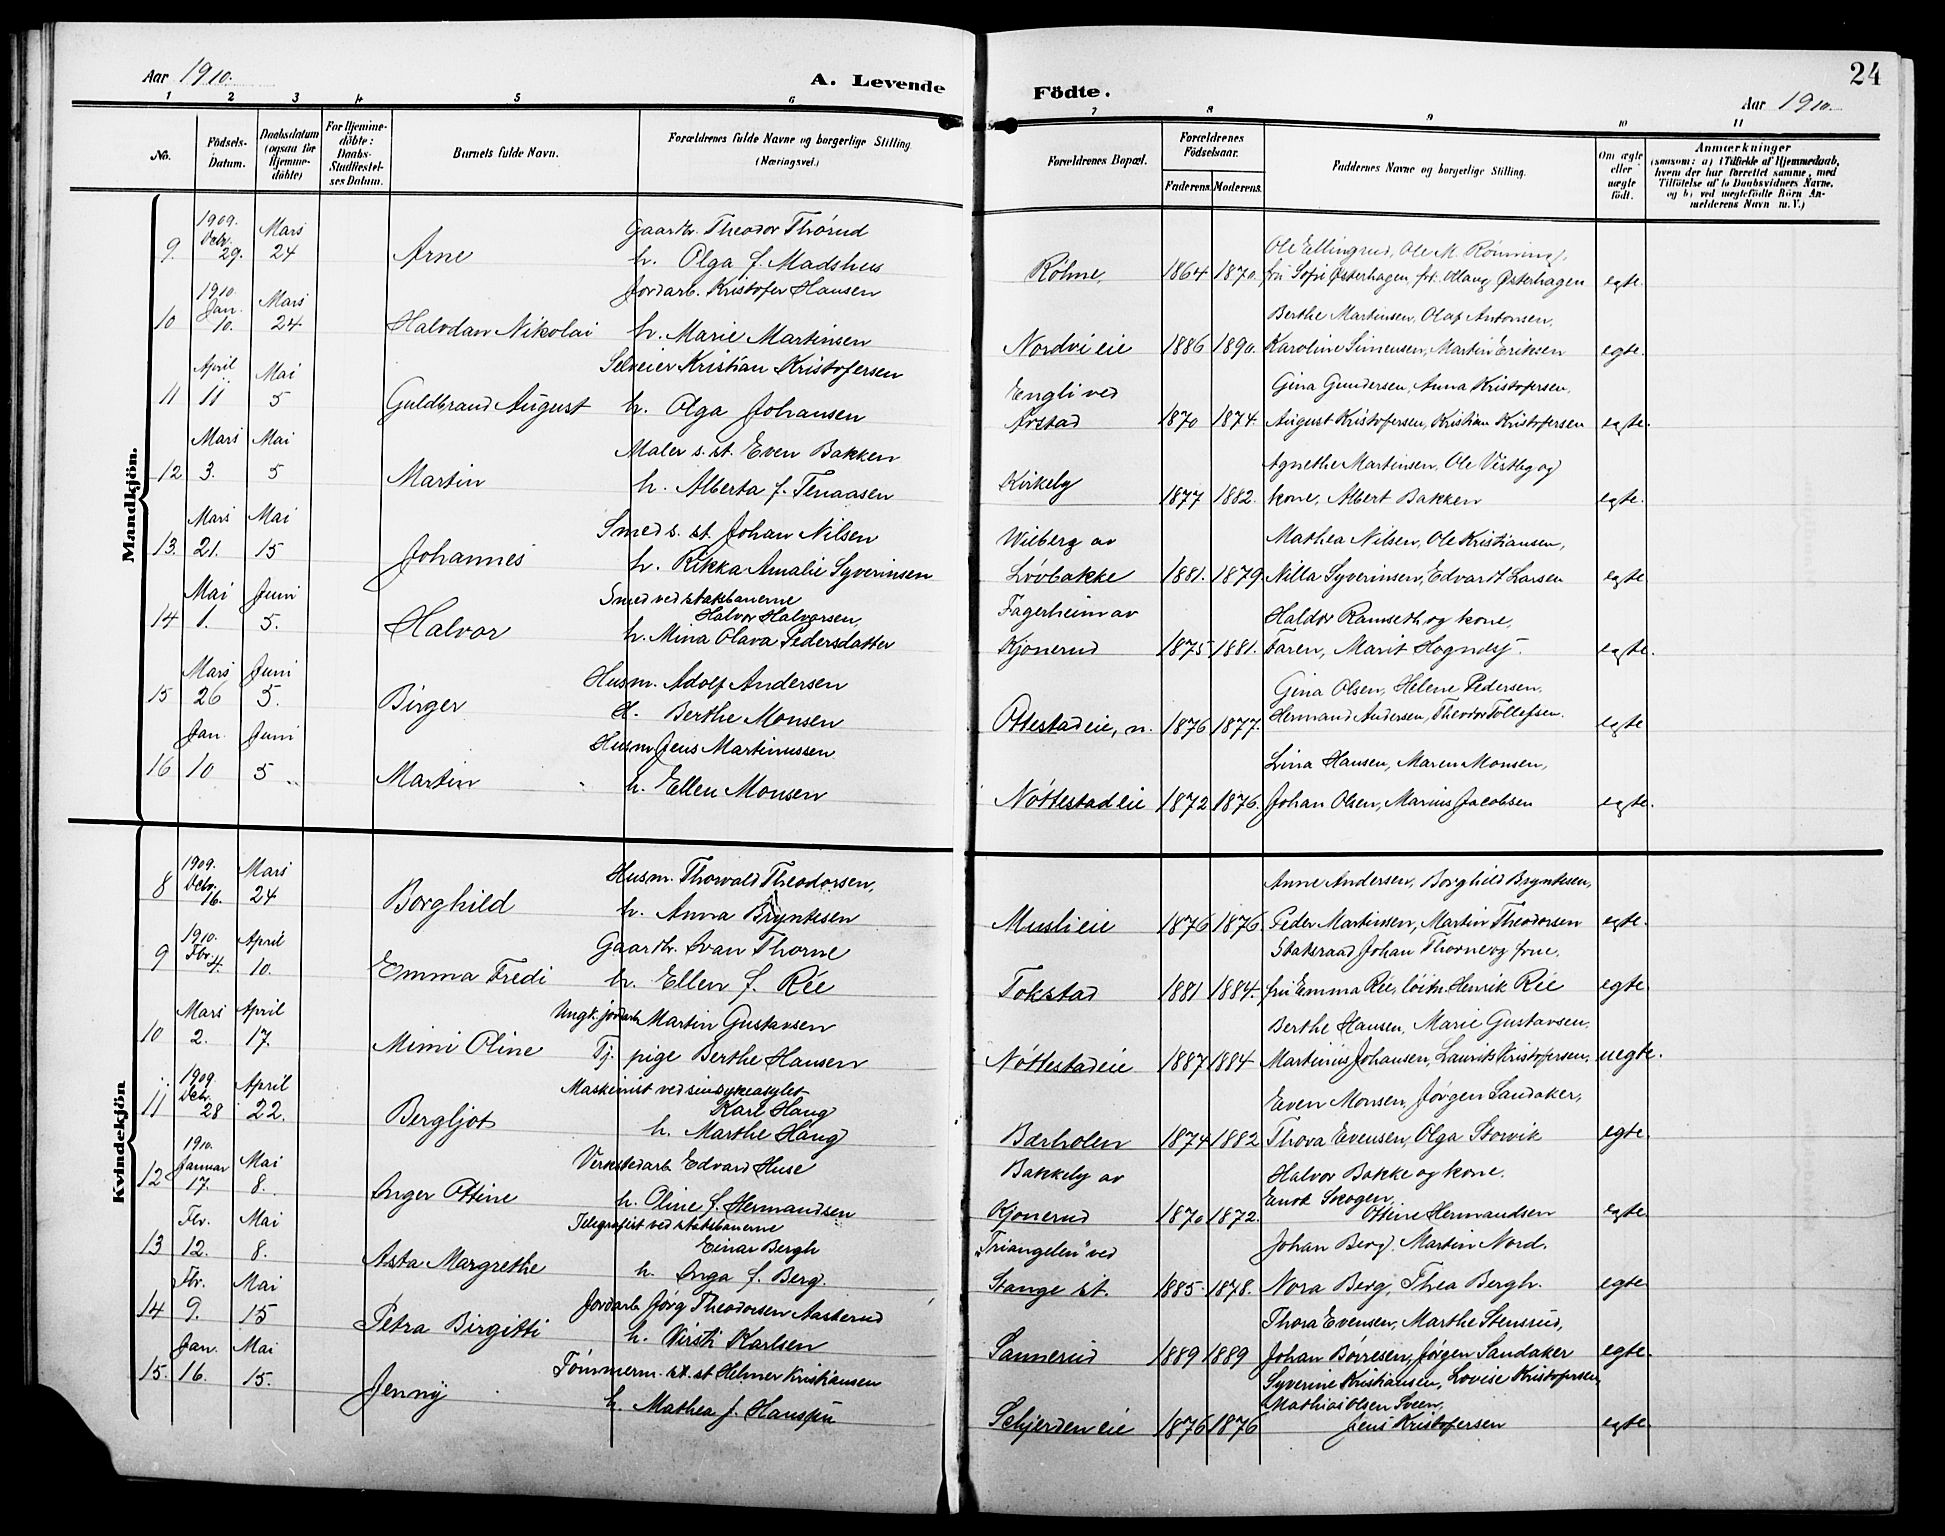 24
Aar 1910.
A. Levende
Födte.
Aar 1910.
1 2 3 4 5 6 7 8 9 10 11
No.
Födsels-Datum.
Daabsdatum (ogsaa for Hjemme-döbte)
For Hjemme-döbte: Daabs-Stadfæstel-ses Datum.
Barnets fulde Navn.
Forældrenes fulde Navne og borgerlige Stilling
(Næringsvei.)
Forældrenes Bopæl.
Forældrenes Födselsaar.
Faderens. Moderens.
Faddernes Navne og borgerlige Stilling.
Om ægte eller uægte födt.
Anmærkninger
(saasom: a) i Tilfælde af Hjemmedaab, hvem der har forrettet samme, med Tilföielse af to Daabsvidners Navne, og b) ved uægtefödte Börn An-melderens Navn m. V.)
Mandkjön.
9. 1909. Decbr. 29. Mars 24 Arne Gaardbr. Theodor Thørud
h. Olga f. Madshus Røhne, 1864 1870. Ole Ellingsrud, Ole M. Rønning,
fru Sofie Østerhagen, frk. Olaug Østerhagen egte.
10 1910. Jan. 10. Mars 24 Halvdan Nikolai Jordarb. Kristofer Hansen
h. Marie Martinsen Nordvi eie 1886 1890. Berthe Martinsen, Olaf Antonsen,
Karoline Simensen, Martin Eriksen egte.
11 April 11 Mai 5 Guldbrand August Selveier Kristian Kristofersen
h. Olga Johansen Engli ved
Arstad 1870 1874. Gina Gundersen, Anna Kristofersen,
August Kristofersen, Kristian Kristofersen egte.
12 Mars 3. Mai 5 Martin Maler s. st. Even Bakken
h. Alberta f. Tenaasen Kirkeby 1877 1882. Agnethe Martinsen, Ole Vestby og
kone, Albert Bakken egte.
13. Mars 21. Mai 15 Johannes Smed s. st. Johan Nilsen
h. Rikka Amalie Syverinsen Wilberg av
Løvbakke 1881. 1879. Mathea Nilsen, Ole Kristiansen,
Nilla Syverinsen, Edvardt Larsen egte
14 Mai 1. Juni 5. Halvor Smed ved statsbanerne
Halvor Halvorsen,
h. Mina Olava Pedersdatter Fagerheim av
Kjonerud 1875 1881. Haldor Ramseth og kone,
Faren, Marit Hogndsj. egte.
15 Mars 26 Juni 5. Birger Husm. Adolf Andersen
H. Berthe Monsen Ottestad eie, n. 1876 1877. Gina Olsen, Helene Pedersen,
Hermand Andersen, Theodor Tollefsen. egte
16 Jan. 10 Juni 5 Martin Husm Jens Martinussen
h. Ellen Monsen Nøttestad eie 1872 1876. Lina Hansen, Maren Monsen,
Johan Olsen, Marius Jacobsen egte.
Kvindekjön
8 1909. Decbr. 16. Mars 24 Borghild Husm. Thorvald Theodorsen,
h. Anna Bryntesen Musli eie 1876 1876. Anne Andersen, Borghild Bryntesen,
Peder Martinsen, Martin Theodorsen egte.
9 1910. Fbr. 4. April 10. Emma Fredi Gaardbr. Ivan Thorne
h. Ellen f. Rée Tokstad 1881 1884. Statsraad Johan Thorne og frue,
fru Emma Rée, løitn. Henrik Rée egte
10 Mars 2. April 17. Mimi Oline Ungk. jordarb Martin Gustavsen
Tj. pige Berthe Hansen Nøttestad eie 1887 1884 Berthe Hansen, Marie Gustavsen,
Martinius Johansen, Laurits Kristofersen, uegte.
11 1909 Decbr. 28 April 22. Bergljot Maskinist ved sindsykeasylet
Karl Haug
h. Marthe Haug Bærholen 1874 1882 Even Monsen, Jørgen Sandaker,
Thora Evensen, Olga Storvik egte
12 1910. Januar 17. Mai 8. Inger Ottine Verkstedarb Edvard Huse
h. Oline f. Hermandsen Bakkeby av
Kjonerud 1870 1872. Halvor Bakke og kone.
Enok Skogen,
Ottine Hermandsen egte
13 Fbr. 12. Mai 8. Asta Margrethe Telegrafist ved statsbanerne
Einar Bergh
h. Inga f. Berg. "Triangelen" ved
Stange st. 1885 1878. Johan Berg, Martin Nord.
Nora Berg, Thea Bergh. egte
14 Fbr. 9. Mai 15 Petra Birgitti Jordarb Jørg Theodorsen Aasterud
h. Kirsti Karlsen Sannerud 1889 1889 Thora Evensen, Marthe Stensrud,
Johan Børresen, Jørgen Sandaker egte.
15. Jan. 16. Mai 15. Jenny Tømmerm. st. st Helmer Kristiansen
h. Mathea f. Schjerden eie 1876 1876 Syverine Kristiansen, Lovise Kristofersen,
Mathias Olsen Sveen,
Jens Kristofersen egte.